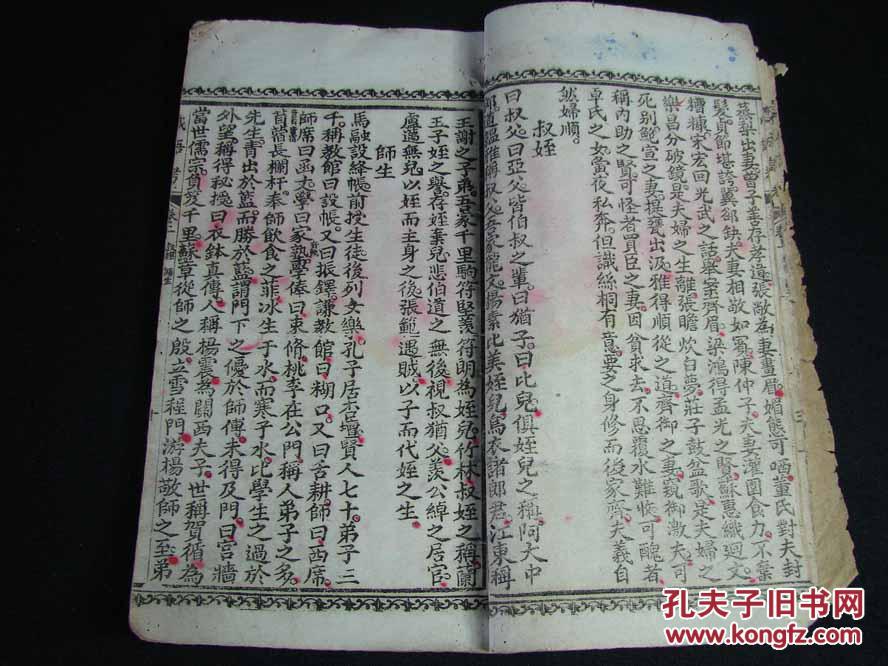 蒸梨出妻曾子善存孝道張敞為妻畫眉媚態可哂董氏對夫封
髮貞節堪誇冀郤缺夫妻相敬如賓陳仲子夫妻灌園食力不棄
糟糠宋宏回光武之語舉案齊眉梁鴻得孟光之賢蘇蕙織迴文
樂昌分破鏡是夫婦之生離張瞻炊臼夢莊子鼓盆歌是夫婦之
死別鮑宣之妻提甕出汲雅得順從之道齊御之妻窺御激夫可
稱內助之賢可怪者買臣之妻因貧求去不思覆水難收可醜者
卓氏之女夤夜私奔但識絲桐有意要之身修而後家齊夫義自
然婦順。
叔姪
曰叔父曰亞父皆伯叔之輩曰猶子曰比兒俱姪兒之稱阿大中
郎道韞雅稱叔父吾家龍文楊素比美姪兒烏衣諸郎君江東稱
王謝之子弟吾家千里駒符堅羨符朗為姪兒竹林叔姪之稱蘭
玉子姪之譽存姪棄兒悲伯道之無後視叔猶父羨公綽之居官
盧邁無兒以姪而主身之後張範遇賊以子而代姪之生
師生
馬融設絳帳前授生徒後列女樂孔子居杏壇賢人七十弟子三
千稱教館曰設帳又曰振鐸謙教館曰糊口又曰舌耕師曰西席
師席曰函丈學曰家塾學俸曰束脩桃李在公門稱人弟子之多
苜蓿長欄杆奉師飲食之菲冰生于水而寒于水比學生之過於
先生青出於藍而勝於藍謂門下之優於師傅未得及門曰宮牆
外望稱得秘授曰衣鉢真傳人稱楊震為關西夫子世稱賀循為
當世儒宗負笈千里蘇章從師之殷立雪程門游楊敬師之至弟
卷二
叔姪
師生
孔夫子旧书网
www.kongfz.com